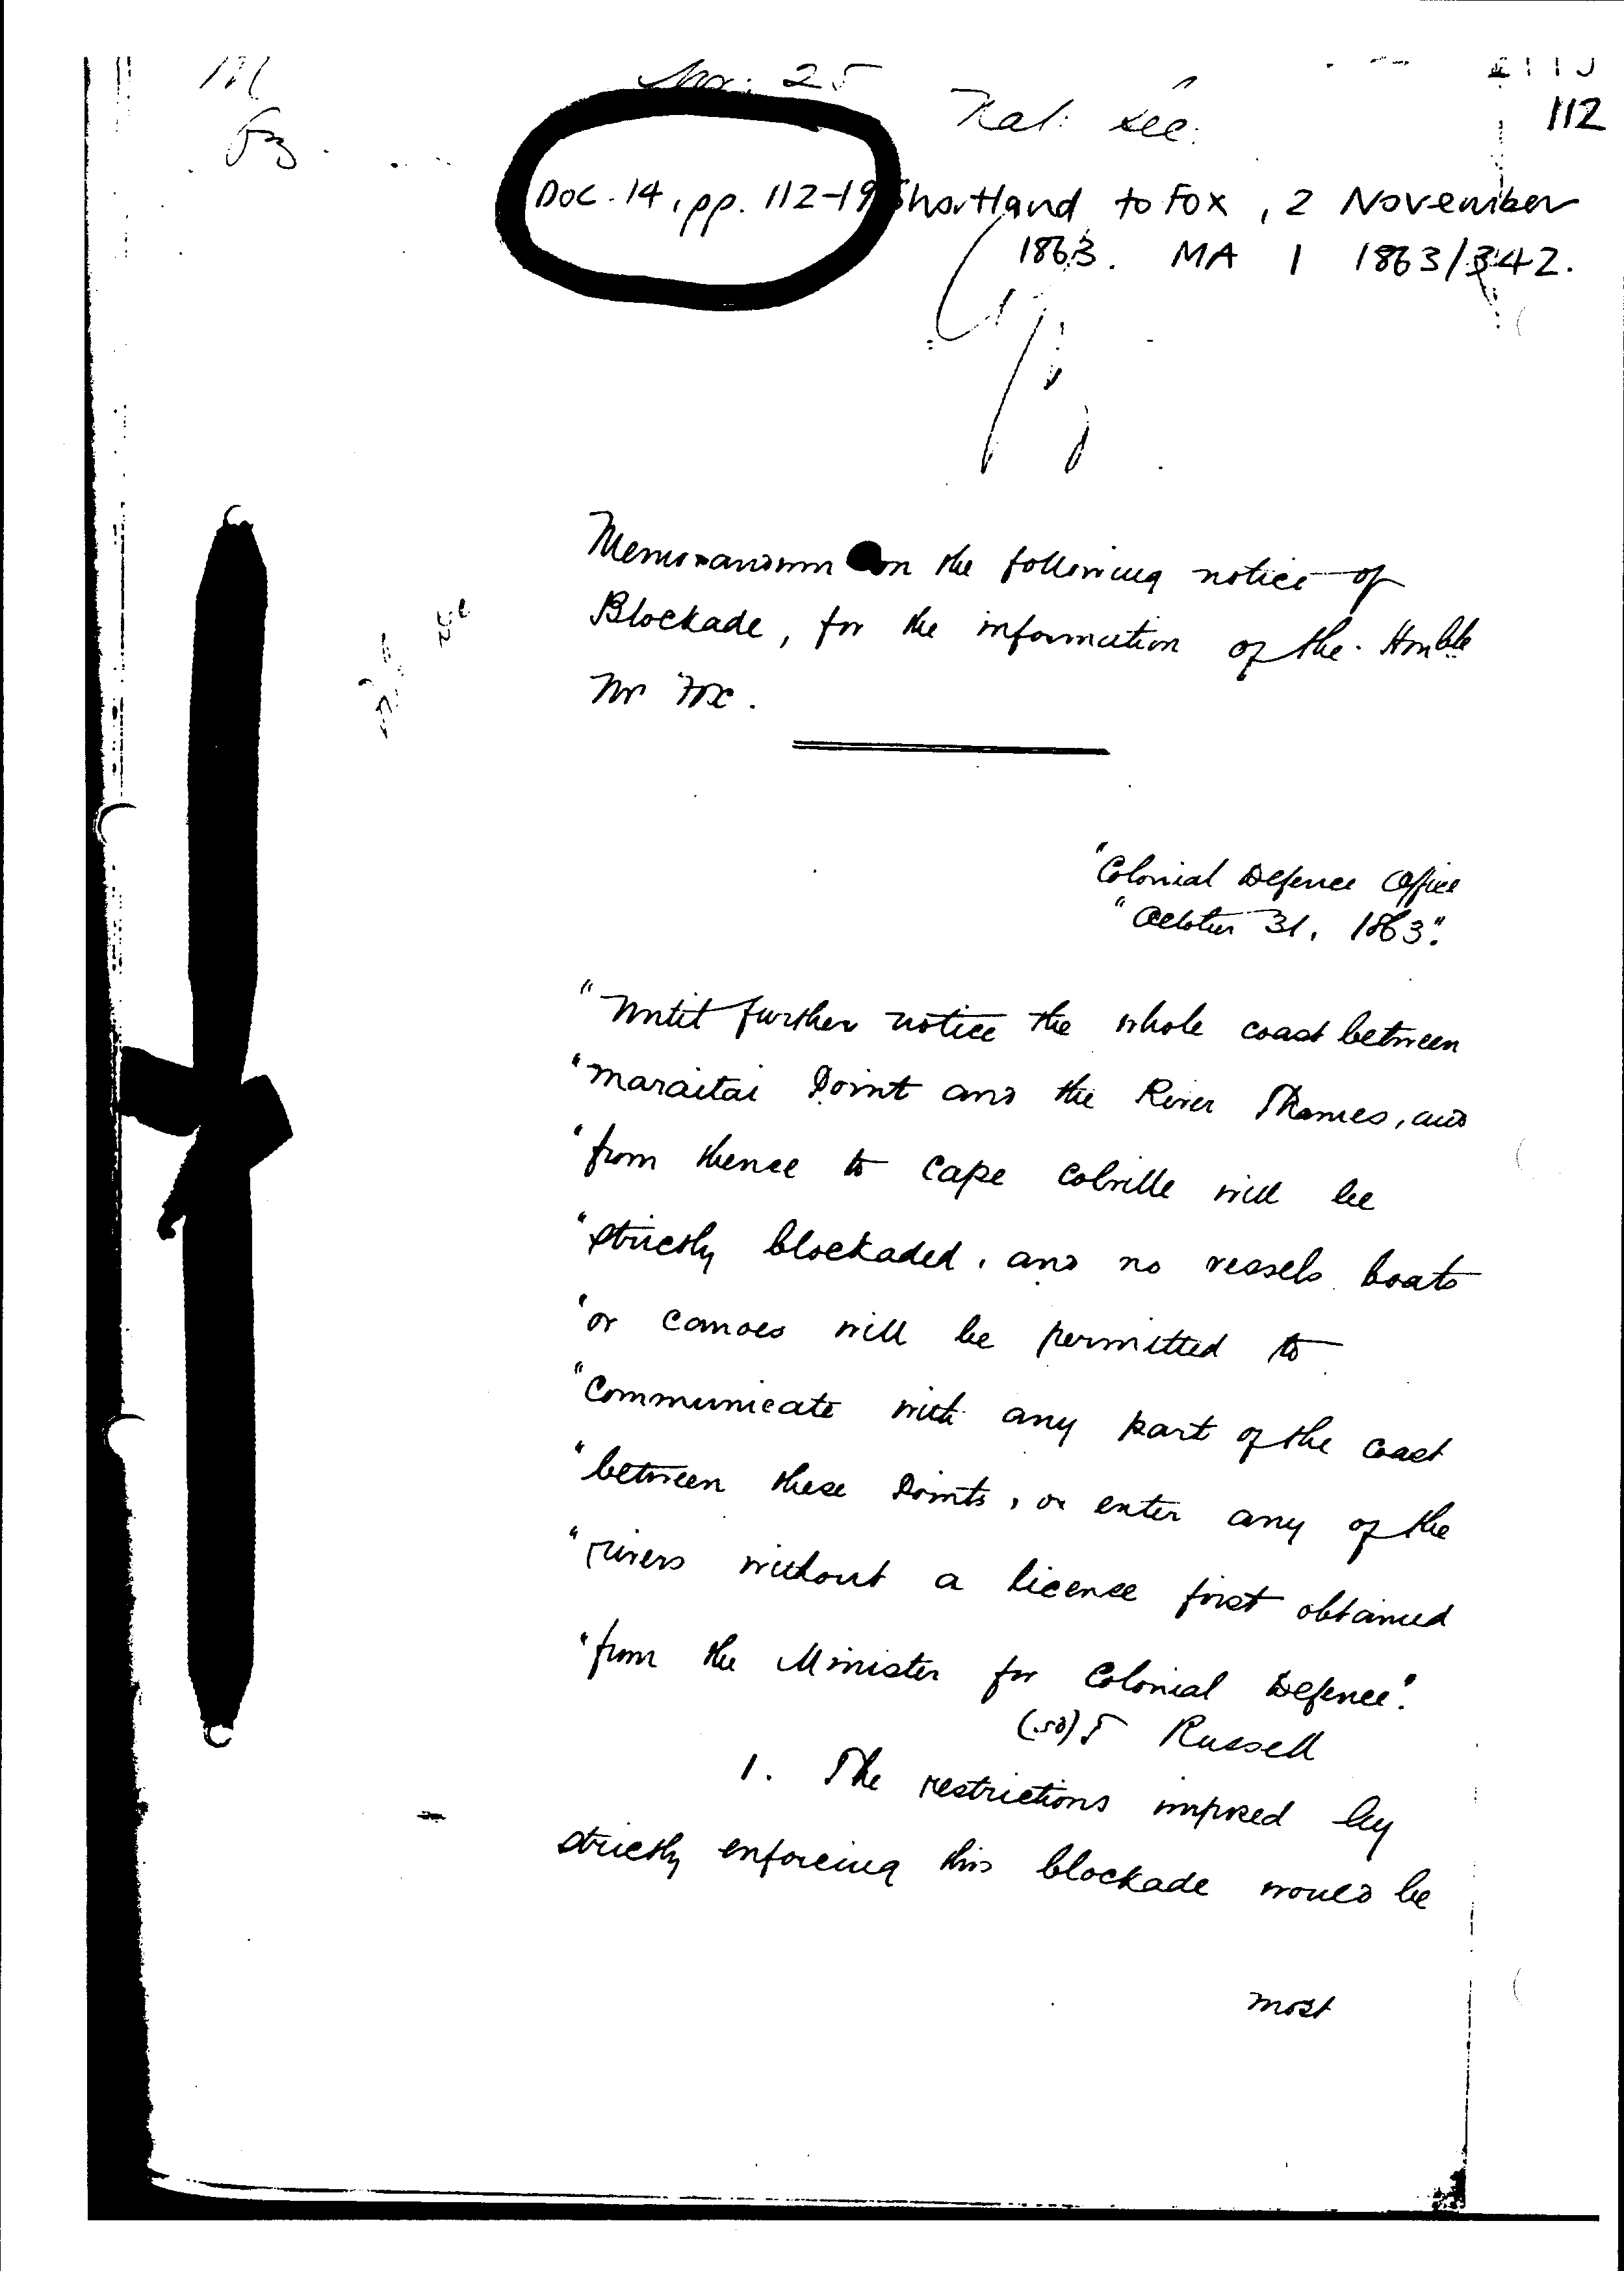 112
Nat: Sec:
Doc. 14, pp. 112-19 Shortland to Fox, 2 November
1863. MA 1 1863/342.
Memorandum on the following notice of
Blockade, for the information of the Honble
Mr Fox.
"Colonial Defence Office
"October 31, 1863".
"Until further notice the whole coast between
"Maraitai Point and the River Thames, and
"from thence to Cape Colville will be
"strictly blockaded, and no vessels boats
"or canoes will be permitted to
"communicate with any part of the coast
"between these Points, or enter any of the
"rivers without a licence first obtained
"from the Minister for Colonial Defence".
(sd) T Russell
1. The restrictions imposed by
strictly enforcing this blockade would be
most